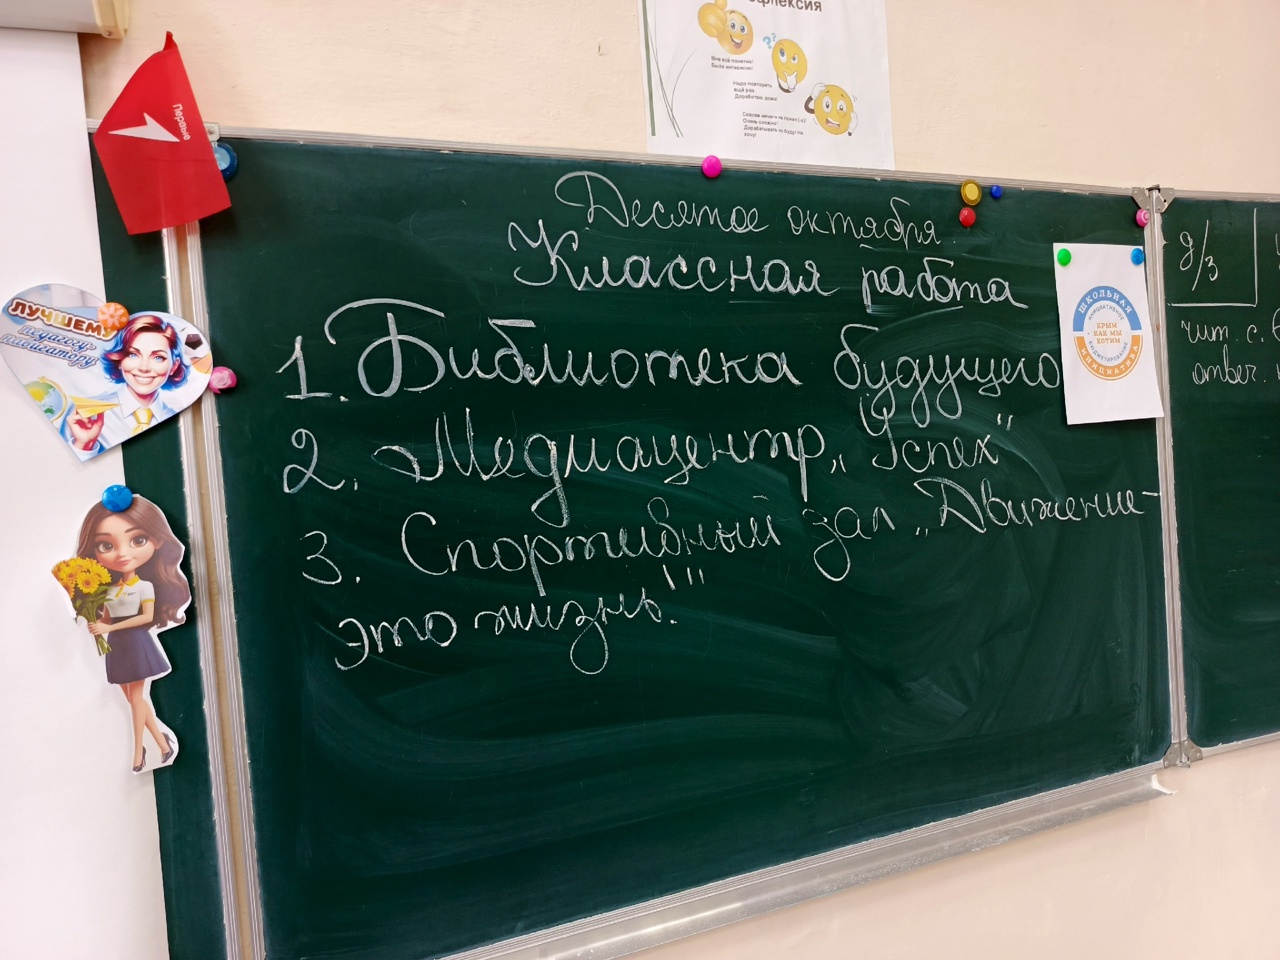 Рефлексия
Мне всё понятно!
Было интересно!
Надо повторить
ещё раз
Доработаю дома!
Очень сложно!
Дорабатывать не буду! Не
хочу!
Первые
ЛУЧШЕМУ
педагогу-
навигатору
Десятое октября.
Классная работа
1. Библиотека будущего
2. Медиацентр „Успех"
3. Спортивный зал „Движение-
это жизнь!"
ШКОЛЬНАЯ
ИНИЦИАТИВНОЕ
КРЫМ
КАК МЫ
ХОТИМ
БЮДЖЕТИРОВАНИЕ
ИНИЦИАТИВА
д/з
чит. с.
ответ.